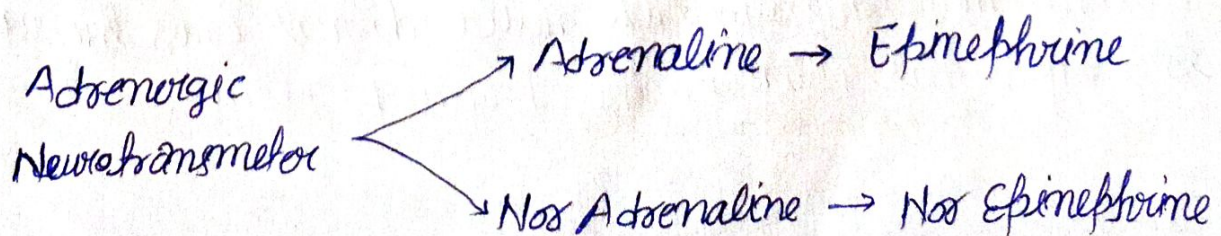 Adrenergic
Neurotransmeter
Adrenaline → Epinephrine
Nor Adrenaline → Nor Epinephrine